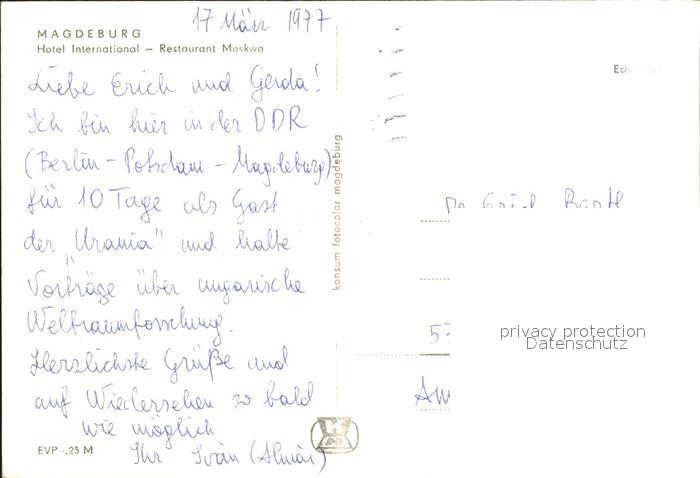 17 März 1977
MAGDEBURG
Hotel International – Restaurant Moskwa
Liebe Erich und Gerda!
Ich bin hier in der DDR
(Berlin – Potsdam – Magdeburg)
für 10 Tage als Gast
der "Urania" und halte
Vorträge über ungarische
Weltraumforschung.
Herzlichste Grüße und
auf Wiedersehen so bald
wie möglich
Ihr Iván (Almár)
EVP -,25 M
konsum fotocolor magdeburg
53
privacy protection
Datenschutz